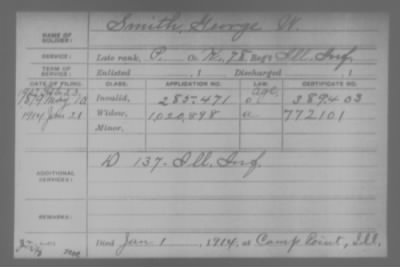 NAME OF SOLDIER: Smith, George W.
SERVICE: Late rank, P. Co. K, 78 Reg't Ill. Inf.
TERM OF SERVICE: Enlisted , 1 Discharged , 1
DATE OF FILING. CLASS. APPLICATION NO. LAW. CERTIFICATE NO.
1879 May 10 Invalid, 285.471 389403
1914 Jan 21 Widow, 1,020,898 772101
Minor,
ADDITIONAL SERVICES: D 137. Ill. Inf.
REMARKS:
Died Jan. 1, 1914, at Camp Point, Ill.